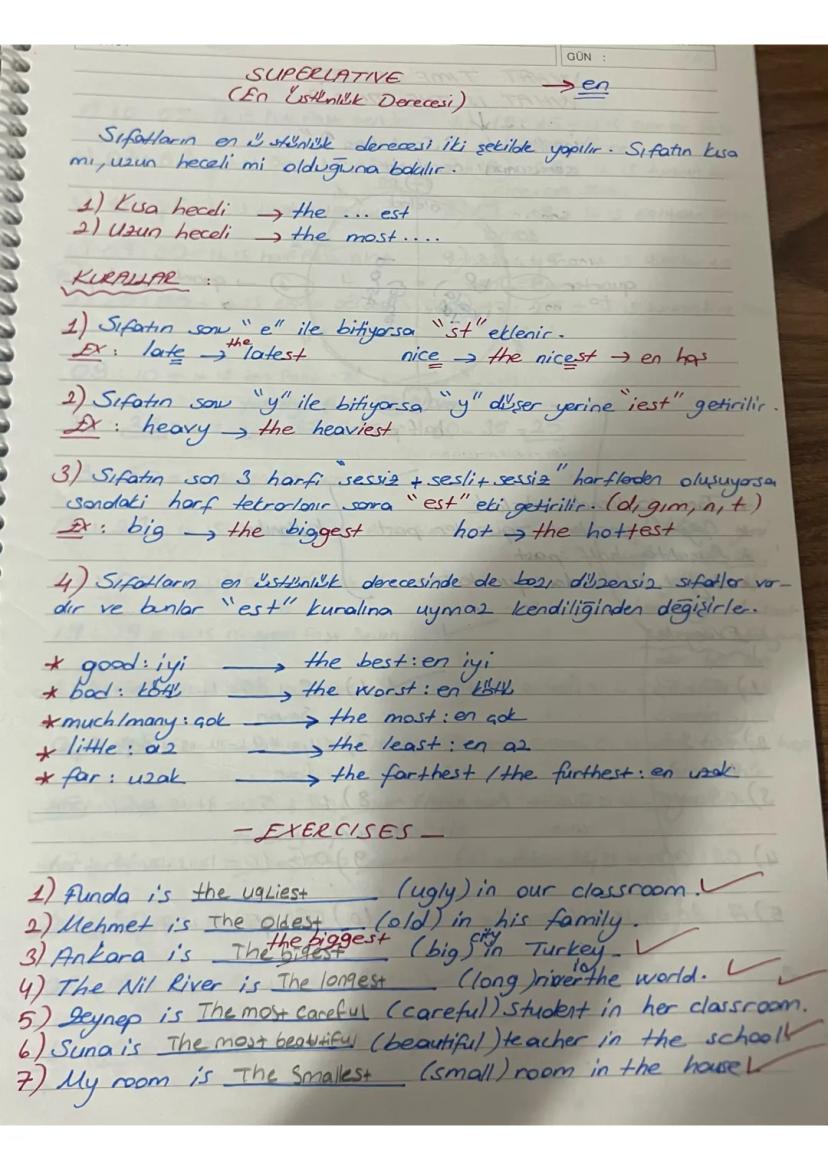 GÜN :
SUPERLATIVE → en
(En Üstünlük Derecesi)
Sıfatların en üstünlük derecesi iki şekilde yapılır. Sıfatın kısa
mı, uzun heceli mi olduğuna bakılır.
1) Kısa heceli → the ... est
2) Uzun heceli → the most ....
KURALLAR :
1) Sıfatın sonu "e" ile bitiyorsa "st" eklenir.
EX : late → the latest nice → the nicest → en hoş
2) Sıfatın sonu "y" ile bitiyorsa "y" düşer yerine "iest" getirilir.
EX : heavy → the heaviest
3) Sıfatın son 3 harfi "sessiz + sesli + sessiz" harflerden oluşuyorsa
sondaki harf tekrarlanır sonra "est" eki getirilir. (d, g, m, n, t)
EX : big → the biggest hot → the hottest
4) Sıfatların en üstünlük derecesinde de bazı düzensiz sıfatlar var-
dır ve bunlar "est" kuralına uymaz kendiliğinden değişirler.
* good : iyi → the best : en iyi
* bad : kötü → the worst : en kötü
* much/many : çok → the most : en çok
* little : az → the least : en az
* far : uzak → the farthest / the furthest : en uzak
- EXERCISES -
1) Funda is the ugliest (ugly) in our classroom. ✓
2) Mehmet is The oldest (old) in his family.
3) Ankara is The bigest the biggest (big) city in Turkey. ✓
4) The Nil River is The longest (long) river in the world. ✓
5) Zeynep is The most careful (careful) student in her classroom. ✓
6) Suna is The most beatiful (beautiful) teacher in the school ✓
7) My room is The Smallest (small) room in the house ✓